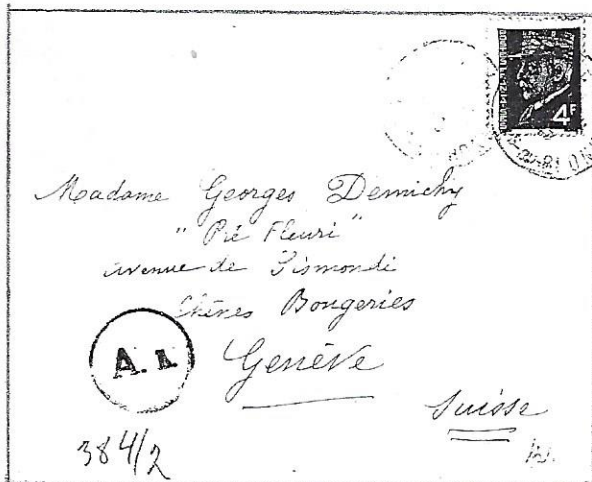 4F
Madame Georges Demichy
"Pré Fleuri"
avenue de Sismondi
Chênes Bougeries
A.
Genève
Suisse
384/2